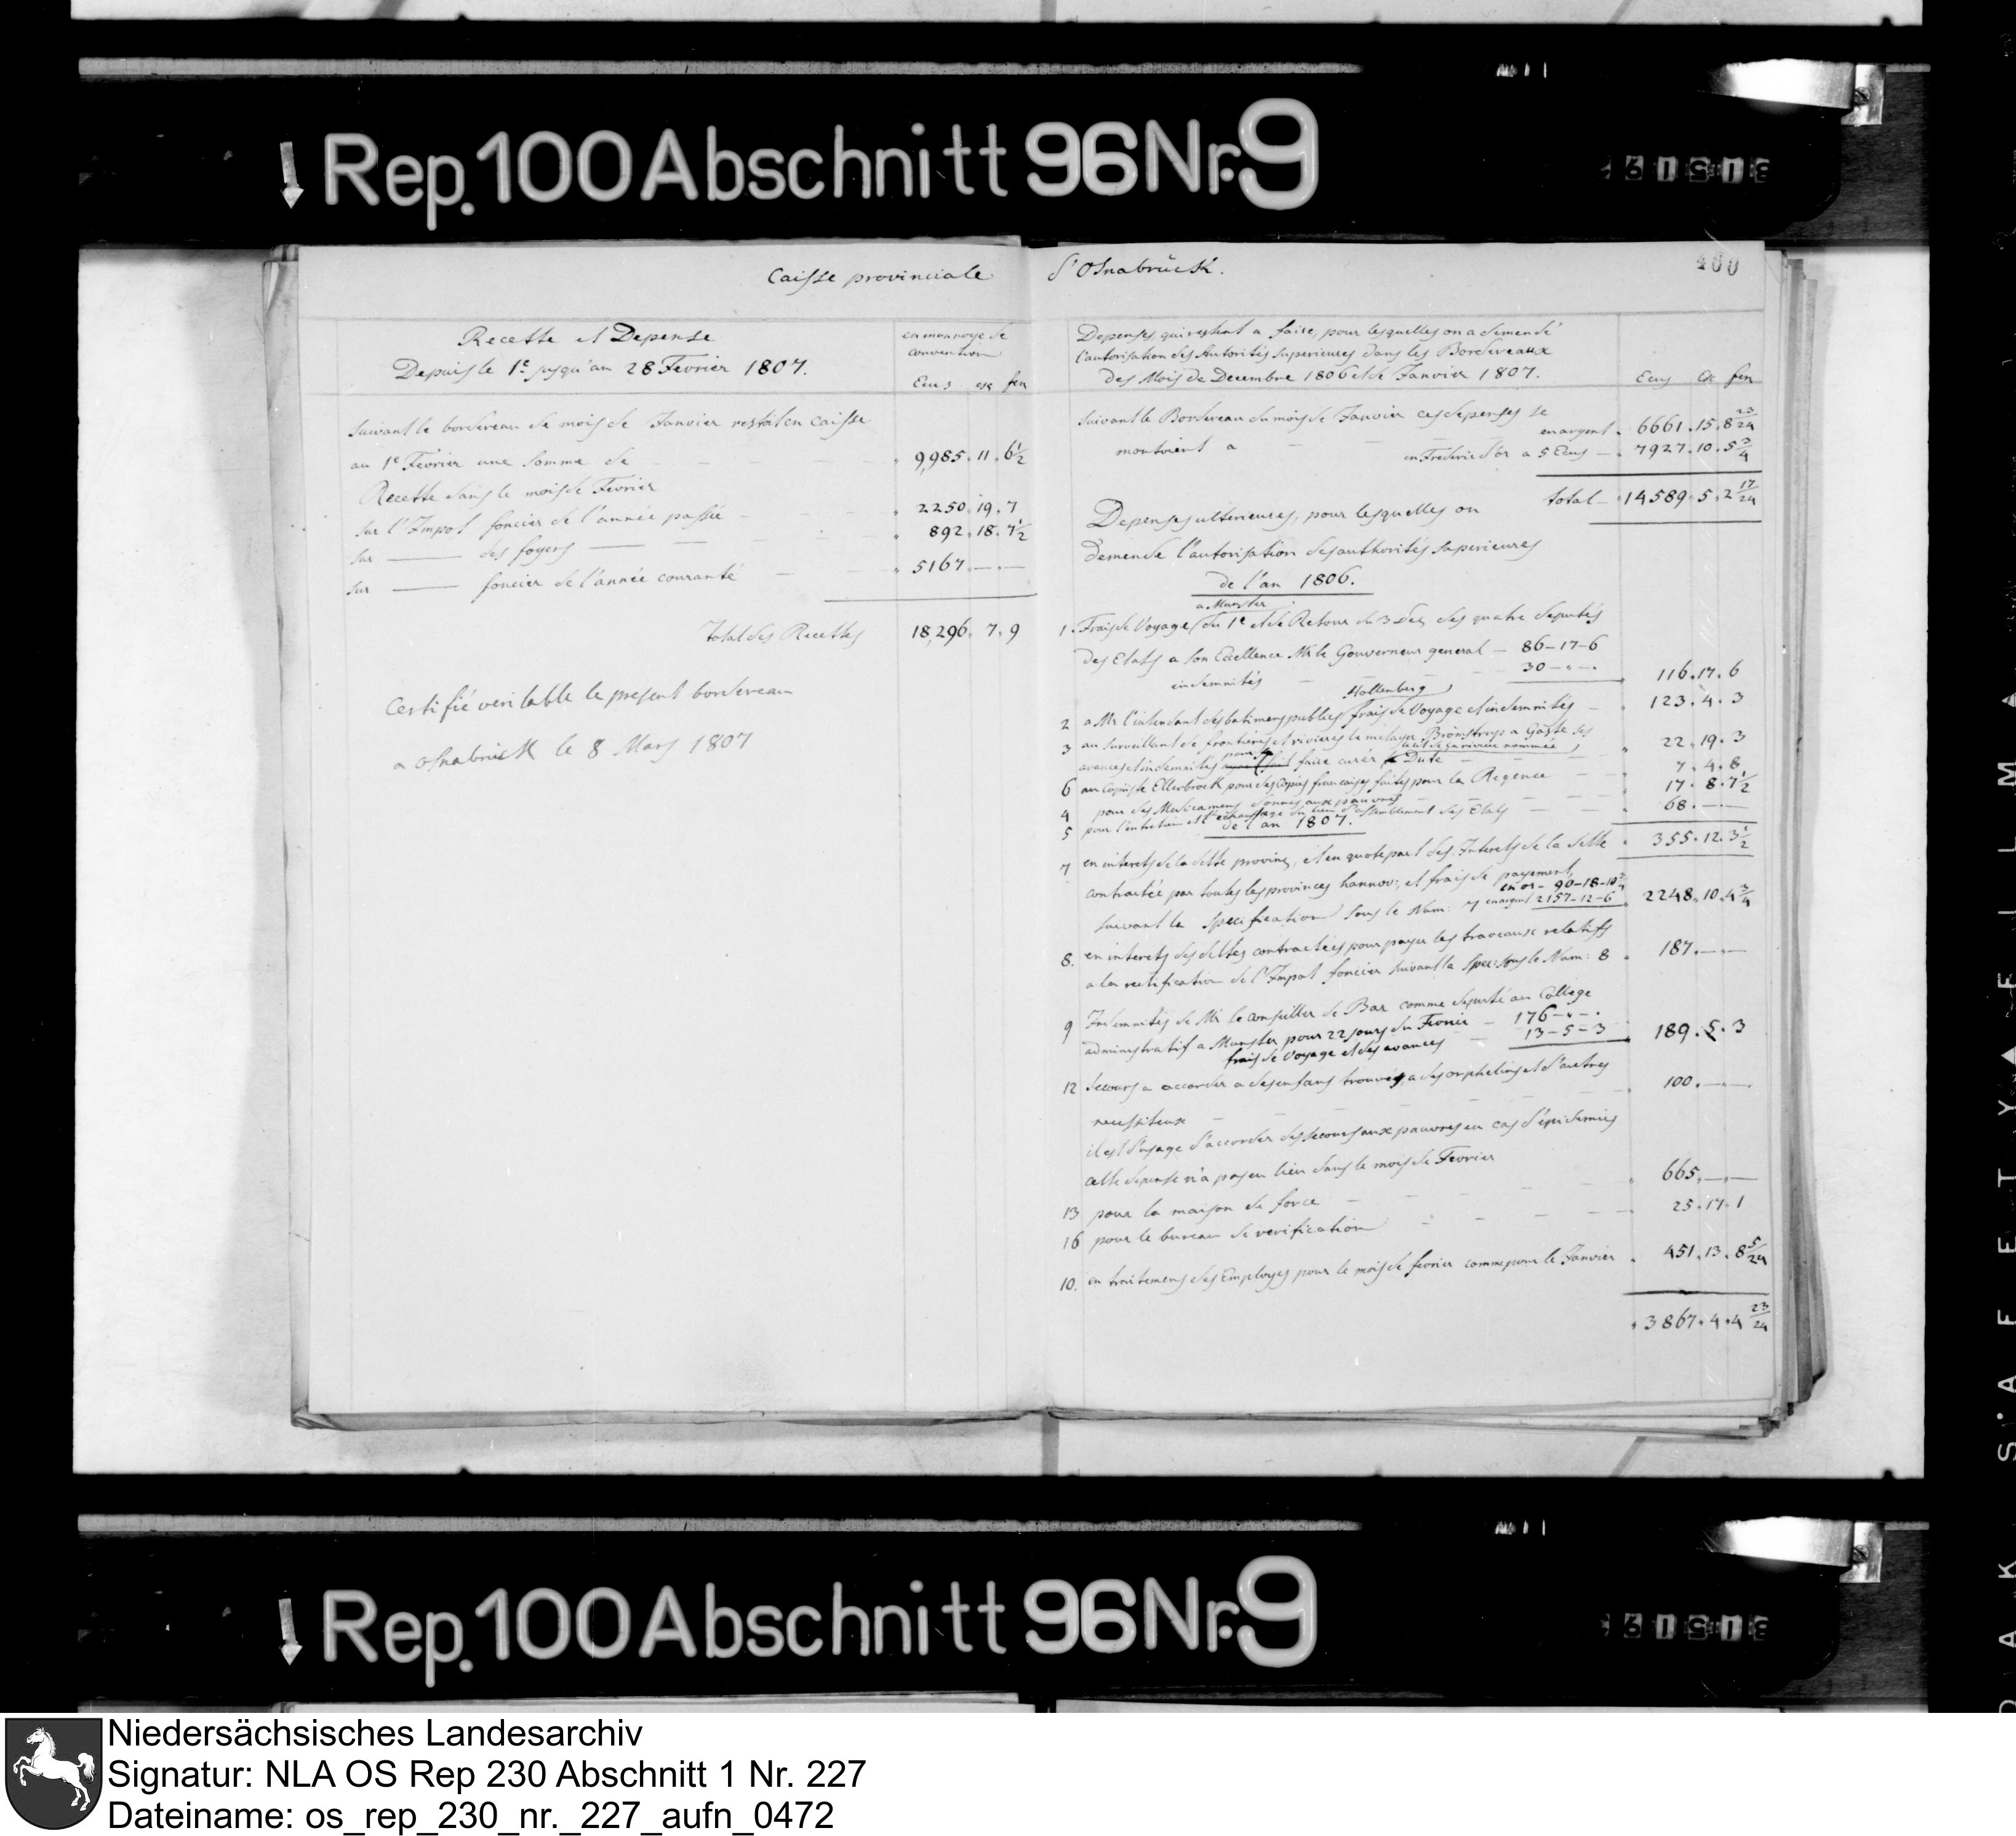 Rep. 100 Abschnitt 96 Nr. 9
Caisse provinciale d'Osnabrück.
400
Recette et Depense
Depuis le 1e jusqu'au 28 Fevrier 1807.
en monnoye de
convention
Ecus gr fen
suivant le bordereau de mois de Janvier restat en caisse
au 1e Fevrier une somme de 9,985. 11. 6 1/2
Recette dans le mois de Fevrier
sur l'Impot foncier de l'année passée 2250. 19. 7
sur —— des foyers —— 892. 18. 7 1/2
sur —— foncier de l'année courante 5167. — . —
Total des Recettes 18,296. 7. 9
Certifié veritable le present bordereau
a Osnabrück le 8 Mars 1807
Depenses, qui restent a faire, pour lesquelles on a demendé
l'autorisation des Autorités superieures dans les Bordereaux
des Mois de Decembre 1806 et de Janvier 1807.
Ecus gr fen
suivant le Bordereau du mois de Janvier ces depenses se
en argent. 6661. 15. 8 23/24
montoient a en Frederic d'or a 5 Ecus — 7927. 10. 5 3/4
total — 14589. 5. 2 17/24
Depenses ulterieures, pour lesquelles on
demende l'autorisation des authorités superieures
de l'an 1806.
a Munster
1. Frais de Voyage du 1e et de Retour du 3 Dec des quatre deputés
des Etats a son Excellence Mr le Gouverneur general — 86-17-6
30 - " - .
indemnités 116. 17. 6
Hollenberg
2 a Mr l'intendant des batimens publics frais de Voyage et indemnités — 123. 4. 3
3 au surveillant de frontieres et rivieres le metayer Brömstrup a Gaste ses
avances et indemnités pour faire curer la Dute 22. 19. 3
6 au Copiste Ellerbrock pour des Copies francaises faites pour la Regence 7. 4. 8
4 pour des Medicamens donnés aux pauvres 17. 8. 7 1/2
5 pour l'entretien et l'echauffage du lieu d'assemblement des Etats 68. — . —
de l'an 1807. 355. 12. 3 1/2
7 en interets de la dette provinc, et en quote part des Interets de la dette
contractée par toutes les provinces hannov:, et frais de payement,
en or - 90-18-10 3/4
suivant la specification sous le Num: 7 en argent 2157-12-6 2248. 10. 4 3/4
8. en interets des dettes contractées pour payer les traveaux relatifs
a la rectification de l'Impot foncier suivant la spec: sous le Num: 8 187. — . —
9 Indemnités de Mr le conseiller de Bar comme deputé au College
administratif a Munster pour 22 jours du Fevrier — 176 - " - .
frais de Voyage et des avances 13-5-3 189. 5. 3
12 Secours a accorder a des enfans trouvés, a des orphelins et d'autres
necessiteux 100. — . —
il est d'usage d'accorder des secours aux pauvres en cas d'épidemies
cette depense n'a pas eu lieu dans le mois de Fevrier
13 pour la maison de force 665. — . —
16 pour le bureau de verification 25. 17. 1
10. en traitemens des Employés pour le mois de fevrier comme pour le Janvier 451. 13. 8 5/24
3867. 4. 4 23/24
Rep. 100 Abschnitt 96 Nr. 9
Niedersächsisches Landesarchiv
Signatur: NLA OS Rep 230 Abschnitt 1 Nr. 227
Dateiname: os_rep_230_nr._227_aufn_0472